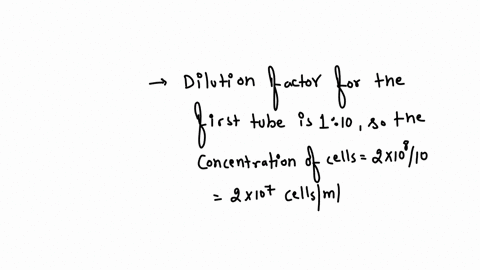 → Dilution factor for the
first tube is 1:10, so the
Concentration of cells = 2×10⁸/10
= 2×10⁷ cells/ml